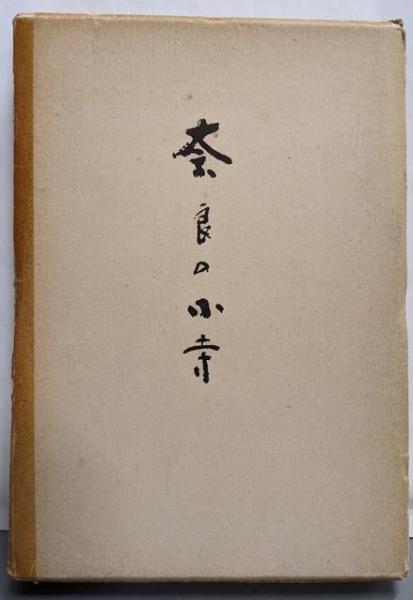 奈良の小寺